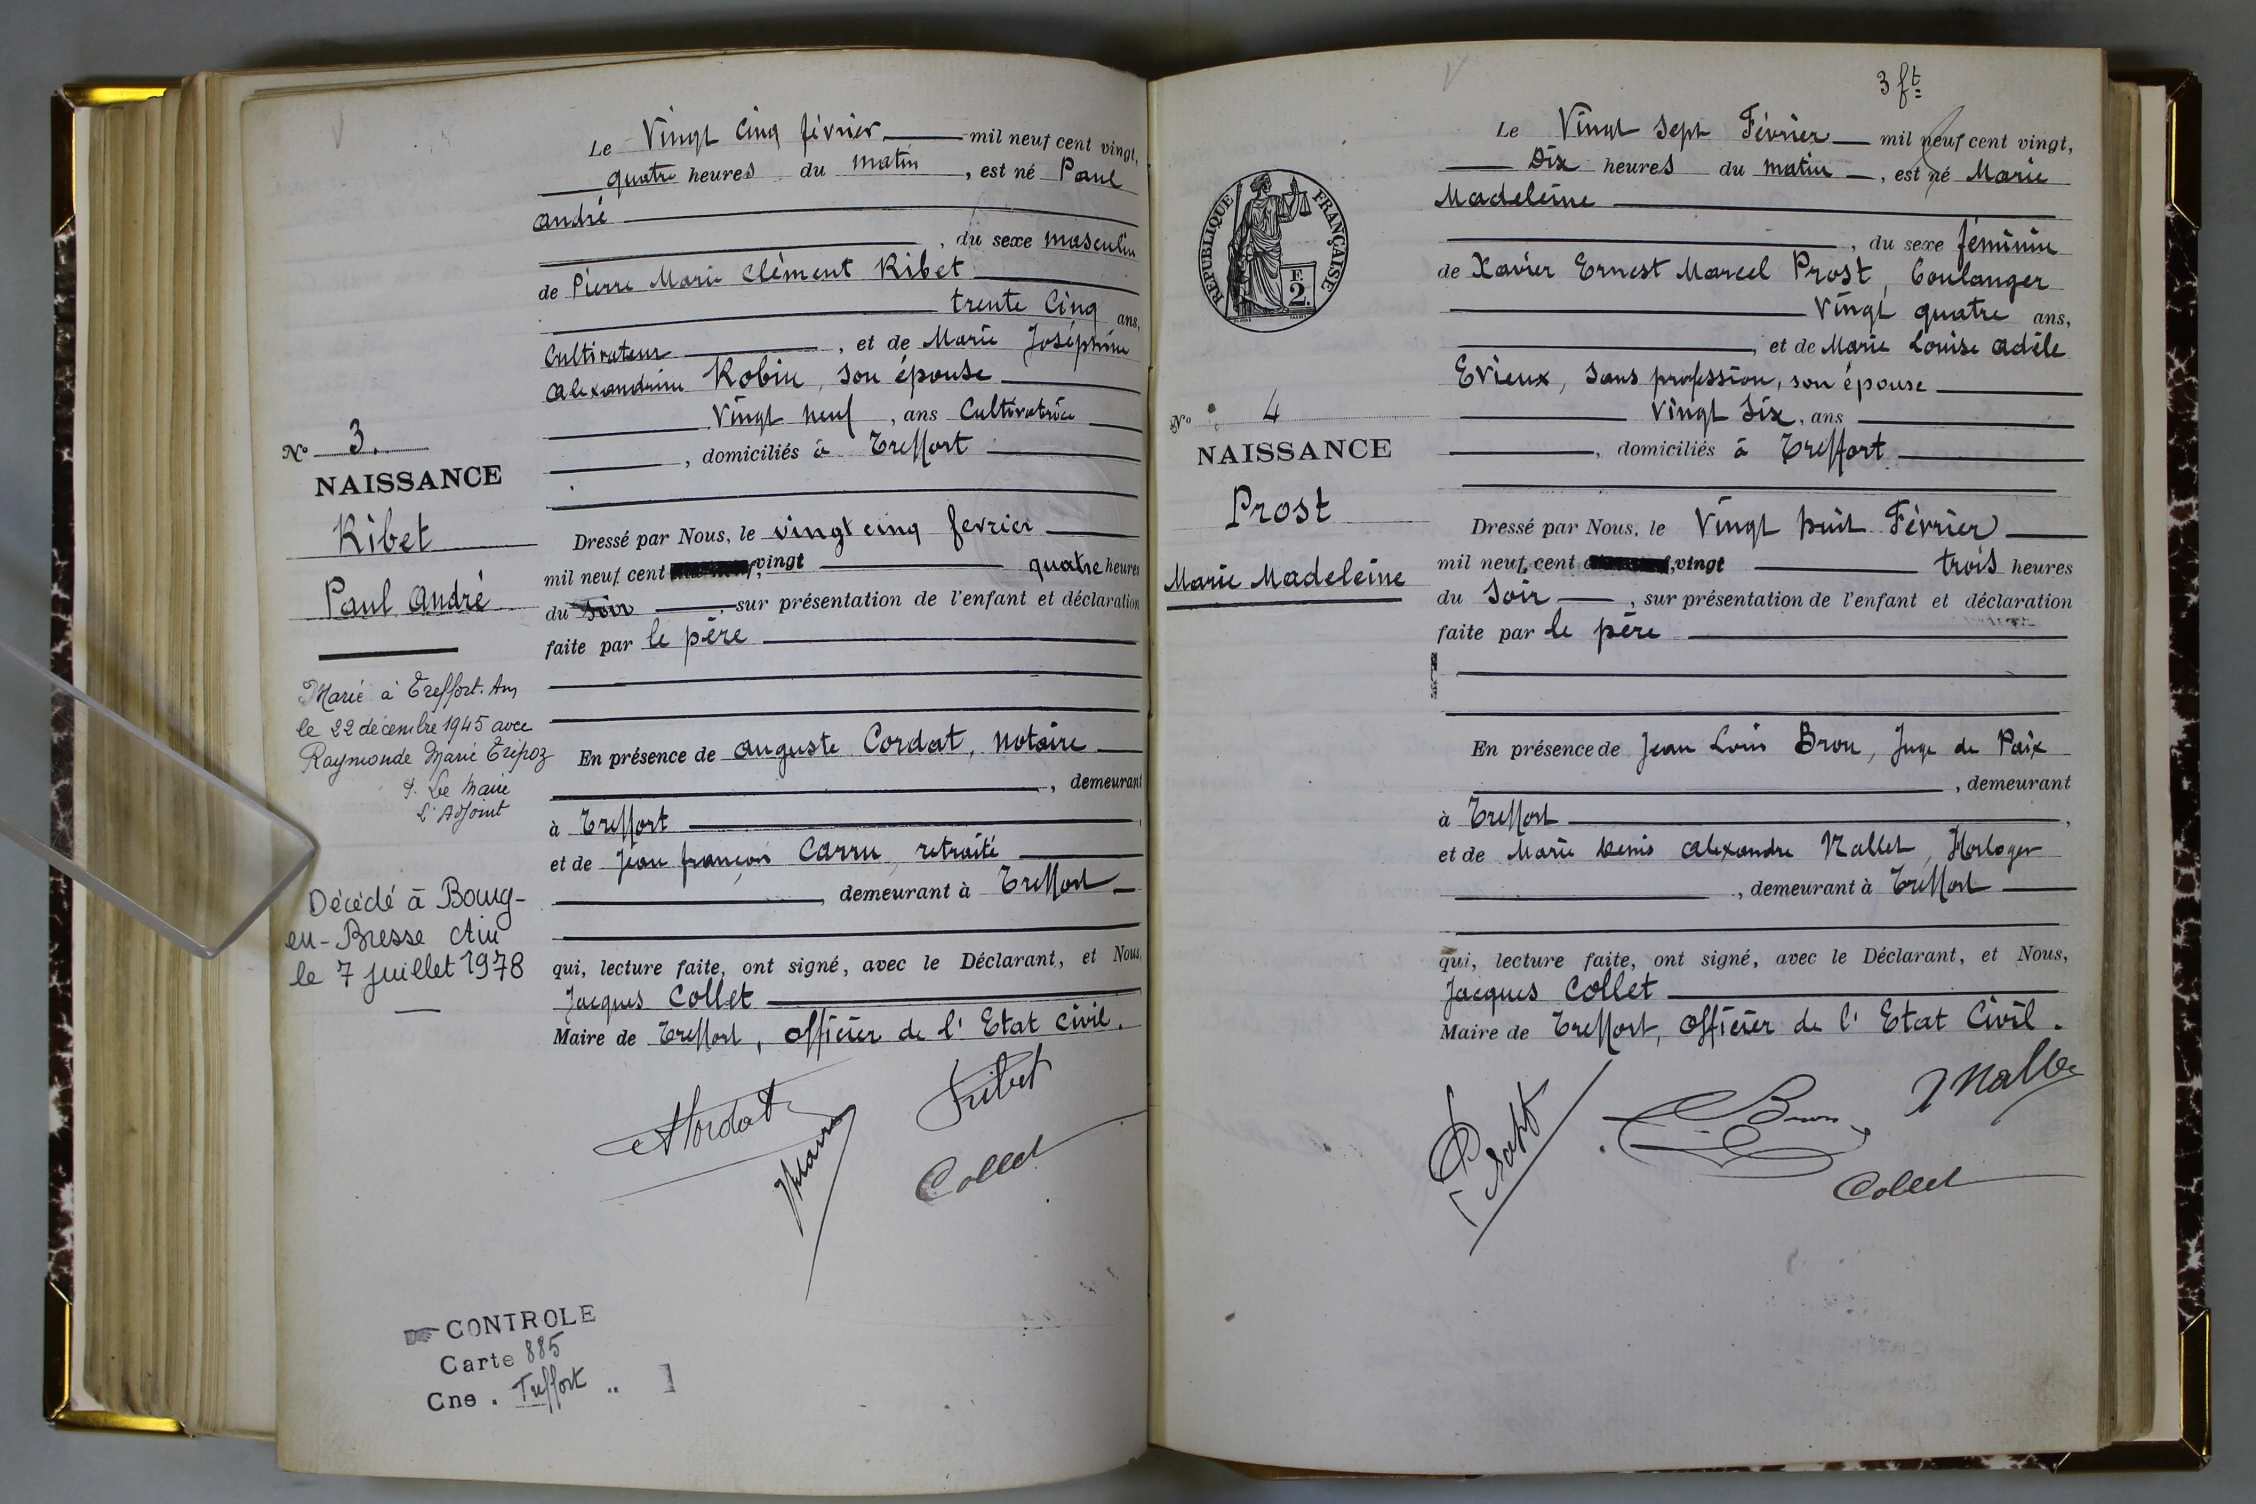 Le Vingt Cinq février mil neuf cent vingt,
quatre heures du matin, est né Paul
André
, du sexe masculin
de Pierre Marie Clément Ribet
trente Cinq ans,
Cultivateur, et de Marie Joséphine
Alexandrine Robin, son épouse
Vingt neuf, ans Cultivatrice
, domiciliés à Treffort
Nº 3.
NAISSANCE
Ribet
Paul André
Dressé par Nous, le vingt cinq fevrier
mil neuf cent vingt quatre heures
du soir, sur présentation de l'enfant et déclaration
faite par le père
Marié à Treffort. Ain
le 22 décembre 1945 avec
Raymonde Marie Tripoz
P. Le Maire
L'Adjoint
En présence de Auguste Cordat, notaire
, demeurant
à Treffort
et de Jean françois Carru, retraité
, demeurant à Treffort
Décédé à Bourg-
en-Bresse Ain
le 7 juillet 1978
qui, lecture faite, ont signé, avec le Déclarant, et Nous,
Jacques Collet
Maire de Treffort, officier de l'Etat civil.
ACordat
Ribet
Collet
CONTROLE
Carte 885
Cne. Treffort
3 ft
Le Vingt sept Février mil neuf cent vingt,
Dix heures du matin, est né Marie
Madeleine
, du sexe féminin
de Xavier Ernest Marcel Prost, boulanger
Vingt quatre ans,
, et de Marie Louise Adèle
Evieux, sans profession, son épouse
vingt six, ans
, domiciliés à Treffort
RÉPUBLIQUE FRANÇAISE
F.
2.
Nº 4
NAISSANCE
Prost
Marie Madeleine
Dressé par Nous, le Vingt huit Février
mil neuf cent vingt trois heures
du soir, sur présentation de l'enfant et déclaration
faite par le père
En présence de Jean Louis Bron, Juge de Paix
, demeurant
à Treffort
et de Marie Denis Alexandre Nallet, Horloger
, demeurant à Treffort
qui, lecture faite, ont signé, avec le Déclarant, et Nous,
Jacques Collet
Maire de Treffort, officier de l'Etat Civil.
Prost
Bron
Nallet
Collet